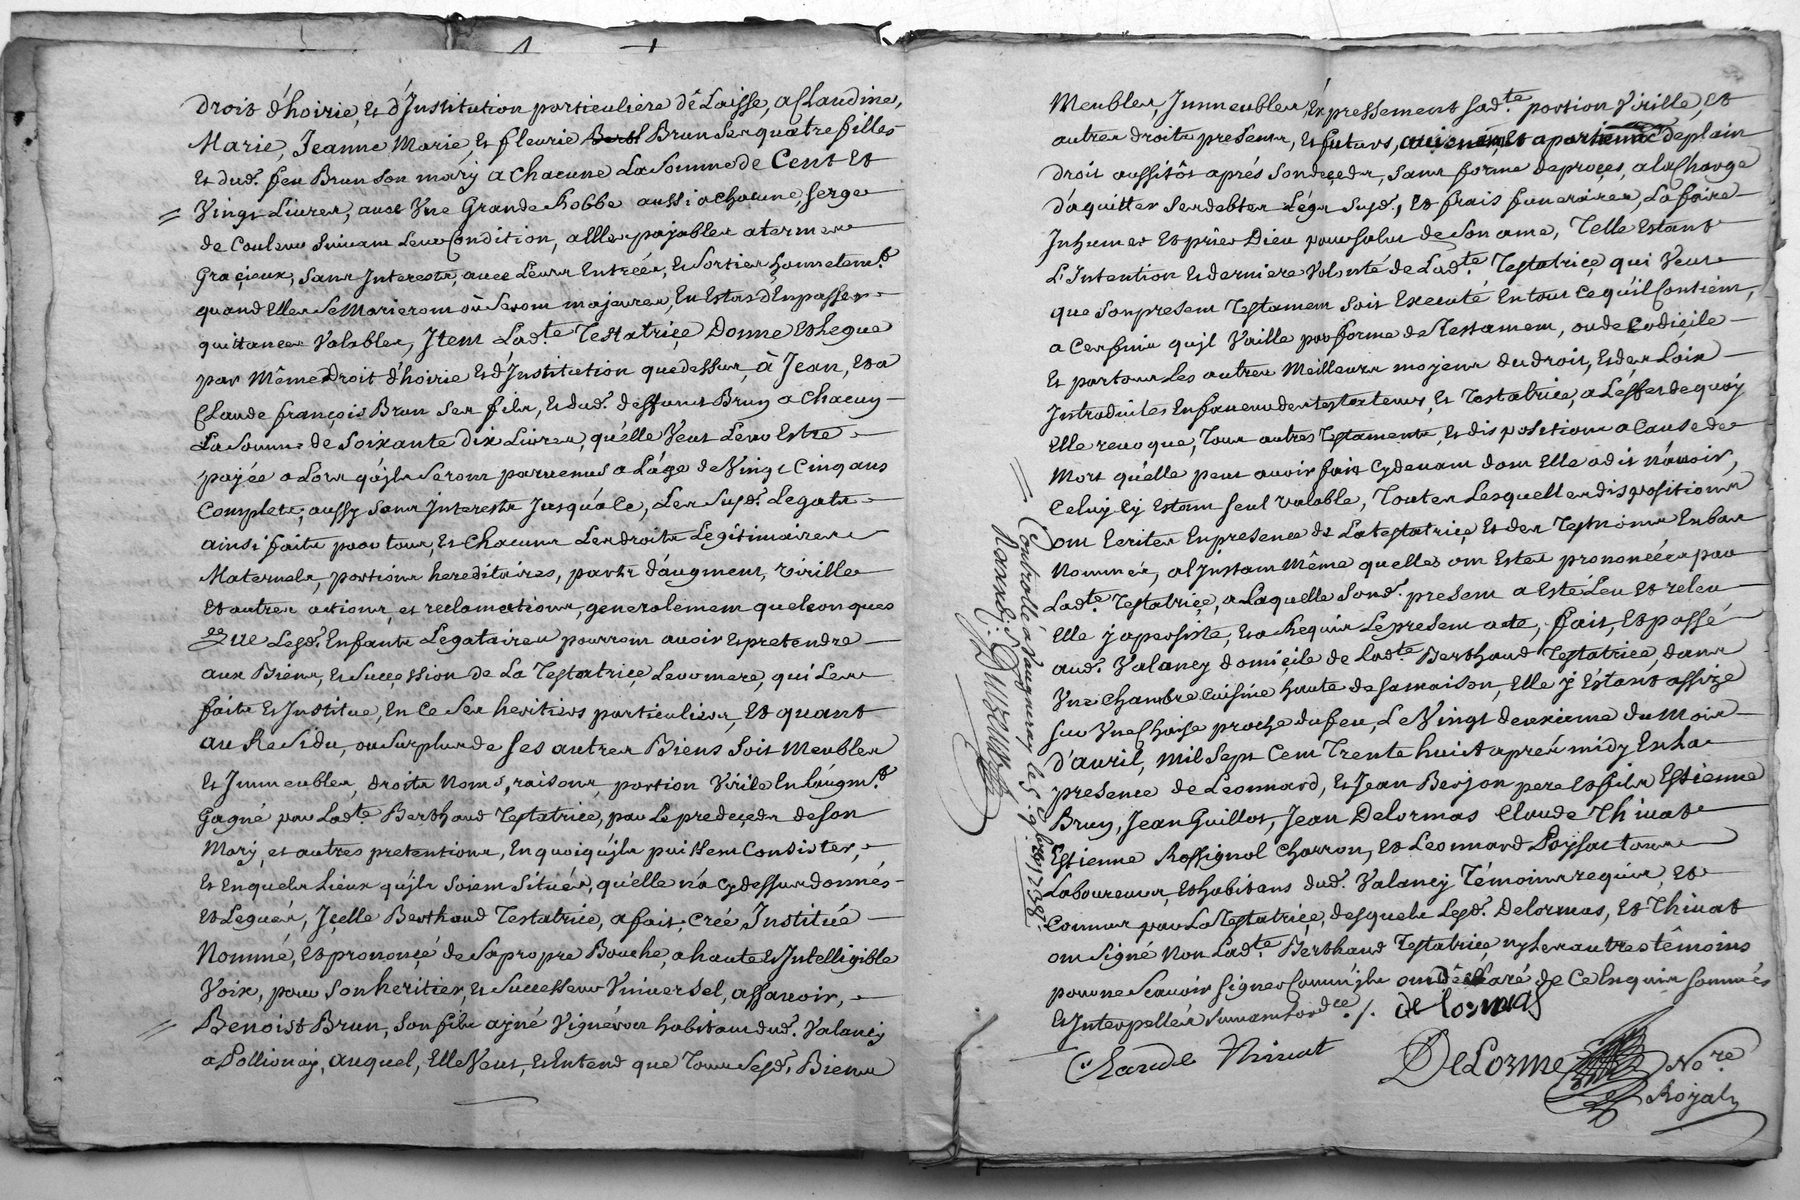 droit d'hoirie, et d'Institution particuliere delaisse, a Claudine,
Marie, Jeanne Marie, et fleurie Brun ses quatre filles
et dud. feu Brun son mary a chacune la somme de Cent et
Vingt Livres, avec Vne Grande Robbe aussi a chacune, serge
de Couleur suivant leur Condition, a Elles payables a termes
Graçieux, sans Interests, avec leurs Entrées, et sorties honnetemt.
quand Elles se Marieront où seront majeures, En Estat d'En passer
quittances Valables, Item Ladte Testatriçe Donne et legue
par Même Droit d'hoirie et d'Institution que dessus, à Jean, et a
Claude françois Brun ses fils, et dud. deffunct Brun a Chacun
La somme de soixante dix Livres, qu'elle Veut leur Estre
payée alors qu'jls seront parvenus a L'âge de Vingt Cinq ans
Complets, aussy sans Interests Jusqu'a Ce, Les susd. Legats
ainsi faits pour tous, et Chacuns Les droits Légitimaires
Maternels, portions hereditaires, parts d'augment, virille
et autres actions, et reclamations generalement quelconques
que Lesd. Enfants Legataires pourront avoir et pretendre
aux Biens, et Succession de La Testatriçe Leur mere, qui Les
faits et Institue, En Ce Ses heritiers particuliers, Et quant
au Residu, ou Surplus de ses autres Biens soit Meubles
et Immeubles, droits Noms, raisons, portion Virile En l'augmt.
Gagné par Ladte Berthaud Testatrice, par Le predeçeds de son
Mary, et autres pretentions, En quoi qu'jls puissent Consister,
et En quels Lieux qu'jls soient Situés, qu'elle n'a cy dessus donnés
et Legués, Jçelle Berthaud Testatrice, a fait, Créé Institué
Nommé, et prononçé de sa propre Bouche, a haute et Intelligible
Voix, pour Son heritier, et Successeur Vniversel, assavoir,
Benoist Brun, Son fils ayné Vigneron habitant dud. Valancy
a Pollionay, auquel, Elle Veut, et Entend que Tous sesd. Biens
Meubles, Immeubles, Expressement sadte portion Virille, et
autres droits presents, et futurs, aviennent et apartiennent de plain
droit aussitôt aprés son deçeds, sans forme de proçes, a la Charge
d'aquitter Ses debtes Légs Susd., et frais funeraires, La faire
Inhumer et prier Dieu pour salut de Son ame, Telle Estant
L'Intention et derniere Volonté de Ladte Testatriçe qui Veut
que Son present Testament Soit Executé En tout Ce qu'il Contient,
a Ces fins qu'jl Vaille par forme de Testament, ou de Codiçile
Et par tous Les autres Meilleurs moyens du droit, et des Loix
Introduites En faveur des testateurs, et Testatrice, a L'effet de quoy
Elle revoque, Tous autres Testaments, et dispositions a Cause de
Mort qu'elle peut avoir fait Cy devant dont Elle a dit n'avoir,
Celuy Cy Estant seul valable, Toutes Lesquelles dispositions
ont Ecrites En presence de La testatriçe et des Tesmoins En bas
Nommés, a l'Instant Même quelles ont Estés prononcées par
Ladte Testatriçe, a Laquelle Sond. present a Esté Leu et releu
Elle y a persisté, et a Requis Le present acte, fait, et passé
aud. Valancy domiçile de Ladte Berthaud Testatrice, dans
Vne chambre cuisine haute de sa maison, Elle y Estant assize
sur Vne Chaise proche du feu, Le Vingt deuxieme du Mois
d'avril, Mil Sept Cent Trente huict aprés midy En La
presence de Leonnard, et Jean Berjon pere et fils Estienne
Brun, Jean Guillot, Jean Delormas Claude Thivat
Estienne Rossignol Charron, et Leonnard Poyssat tous
Laboureurs, et habitans dud. Valancy Témoins requis, et
Connus par La Testatriçe, desquels Lesd. Delormas, et Thivat
ont signé Non Ladte Berthaud Testatriçe, ny Les autres témoins
pour ne Scavoir signer Comm'jls ont déclaré de Ce Enquis sommés
et Interpellés suivant Lordce ./. delormas
Claude Thivat DeLorme Nore
Royal
Controllé a Vaugneray le 5. 9bre 1738